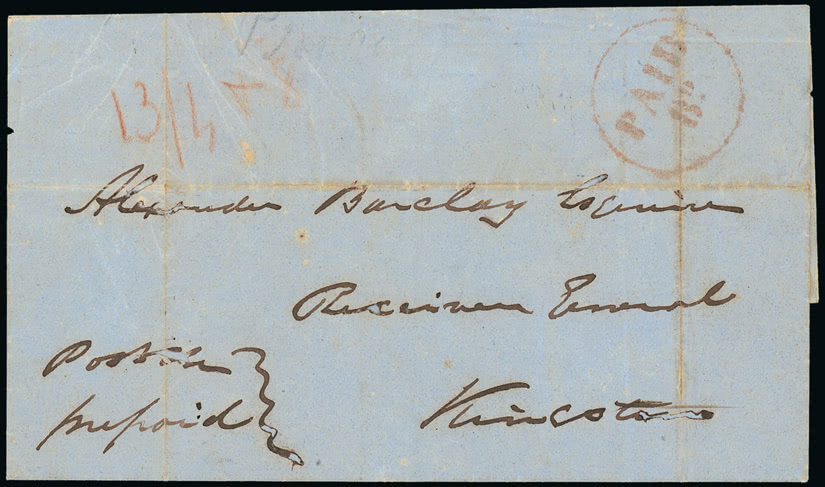 13/4
PAID
Alexander Barclay Esquire
Receiver General
Postage
prepaid
Kingston